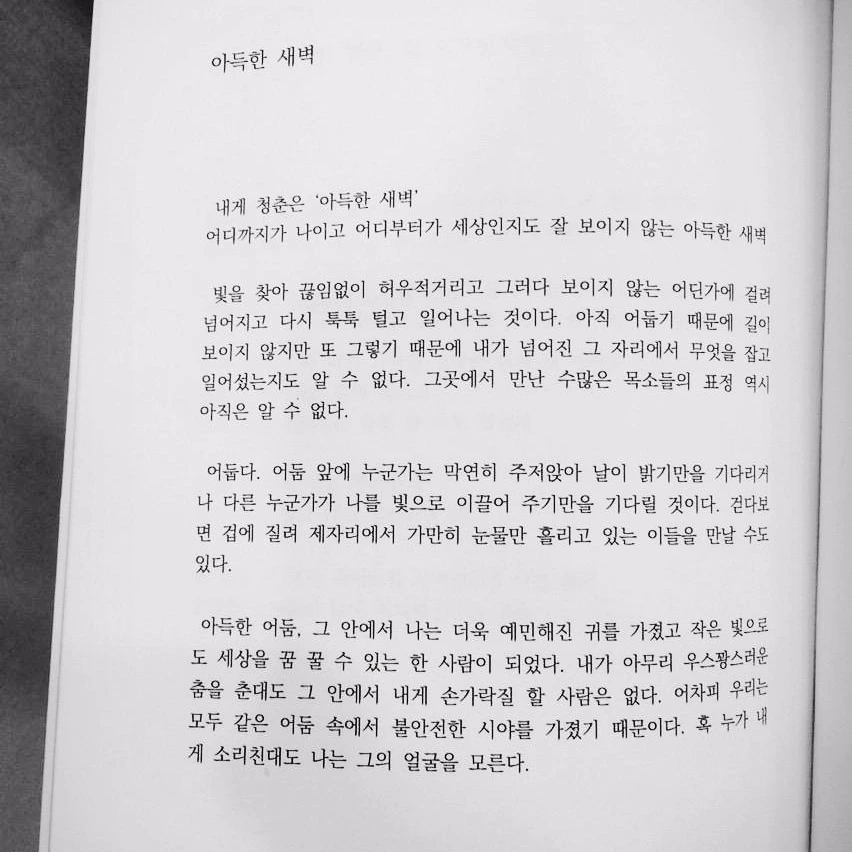 아득한 새벽
내게 청춘은 ‘아득한 새벽’
어디까지가 나이고 어디부터가 세상인지도 잘 보이지 않는 아득한 새벽
빛을 찾아 끊임없이 허우적거리고 그러다 보이지 않는 어딘가에 걸려
넘어지고 다시 툭툭 털고 일어나는 것이다. 아직 어둡기 때문에 길이
보이지 않지만 또 그렇기 때문에 내가 넘어진 그 자리에서 무엇을 잡고
일어섰는지도 알 수 없다. 그곳에서 만난 수많은 목소들의 표정 역시
아직은 알 수 없다.
어둡다. 어둠 앞에 누군가는 막연히 주저앉아 날이 밝기만을 기다리거
나 다른 누군가가 나를 빛으로 이끌어 주기만을 기다릴 것이다. 걷다보
면 겁에 질려 제자리에서 가만히 눈물만 흘리고 있는 이들을 만날 수도
있다.
아득한 어둠, 그 안에서 나는 더욱 예민해진 귀를 가졌고 작은 빛으로
도 세상을 꿈 꿀 수 있는 한 사람이 되었다. 내가 아무리 우스꽝스러운
춤을 춘대도 그 안에서 내게 손가락질 할 사람은 없다. 어차피 우리는
모두 같은 어둠 속에서 불안전한 시야를 가졌기 때문이다. 혹 누가 내
게 소리친대도 나는 그의 얼굴을 모른다.